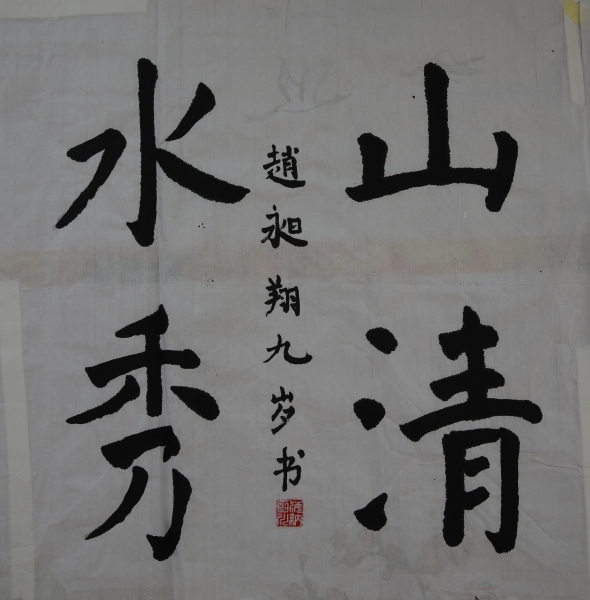 山清
水秀
趙昶翔九岁书